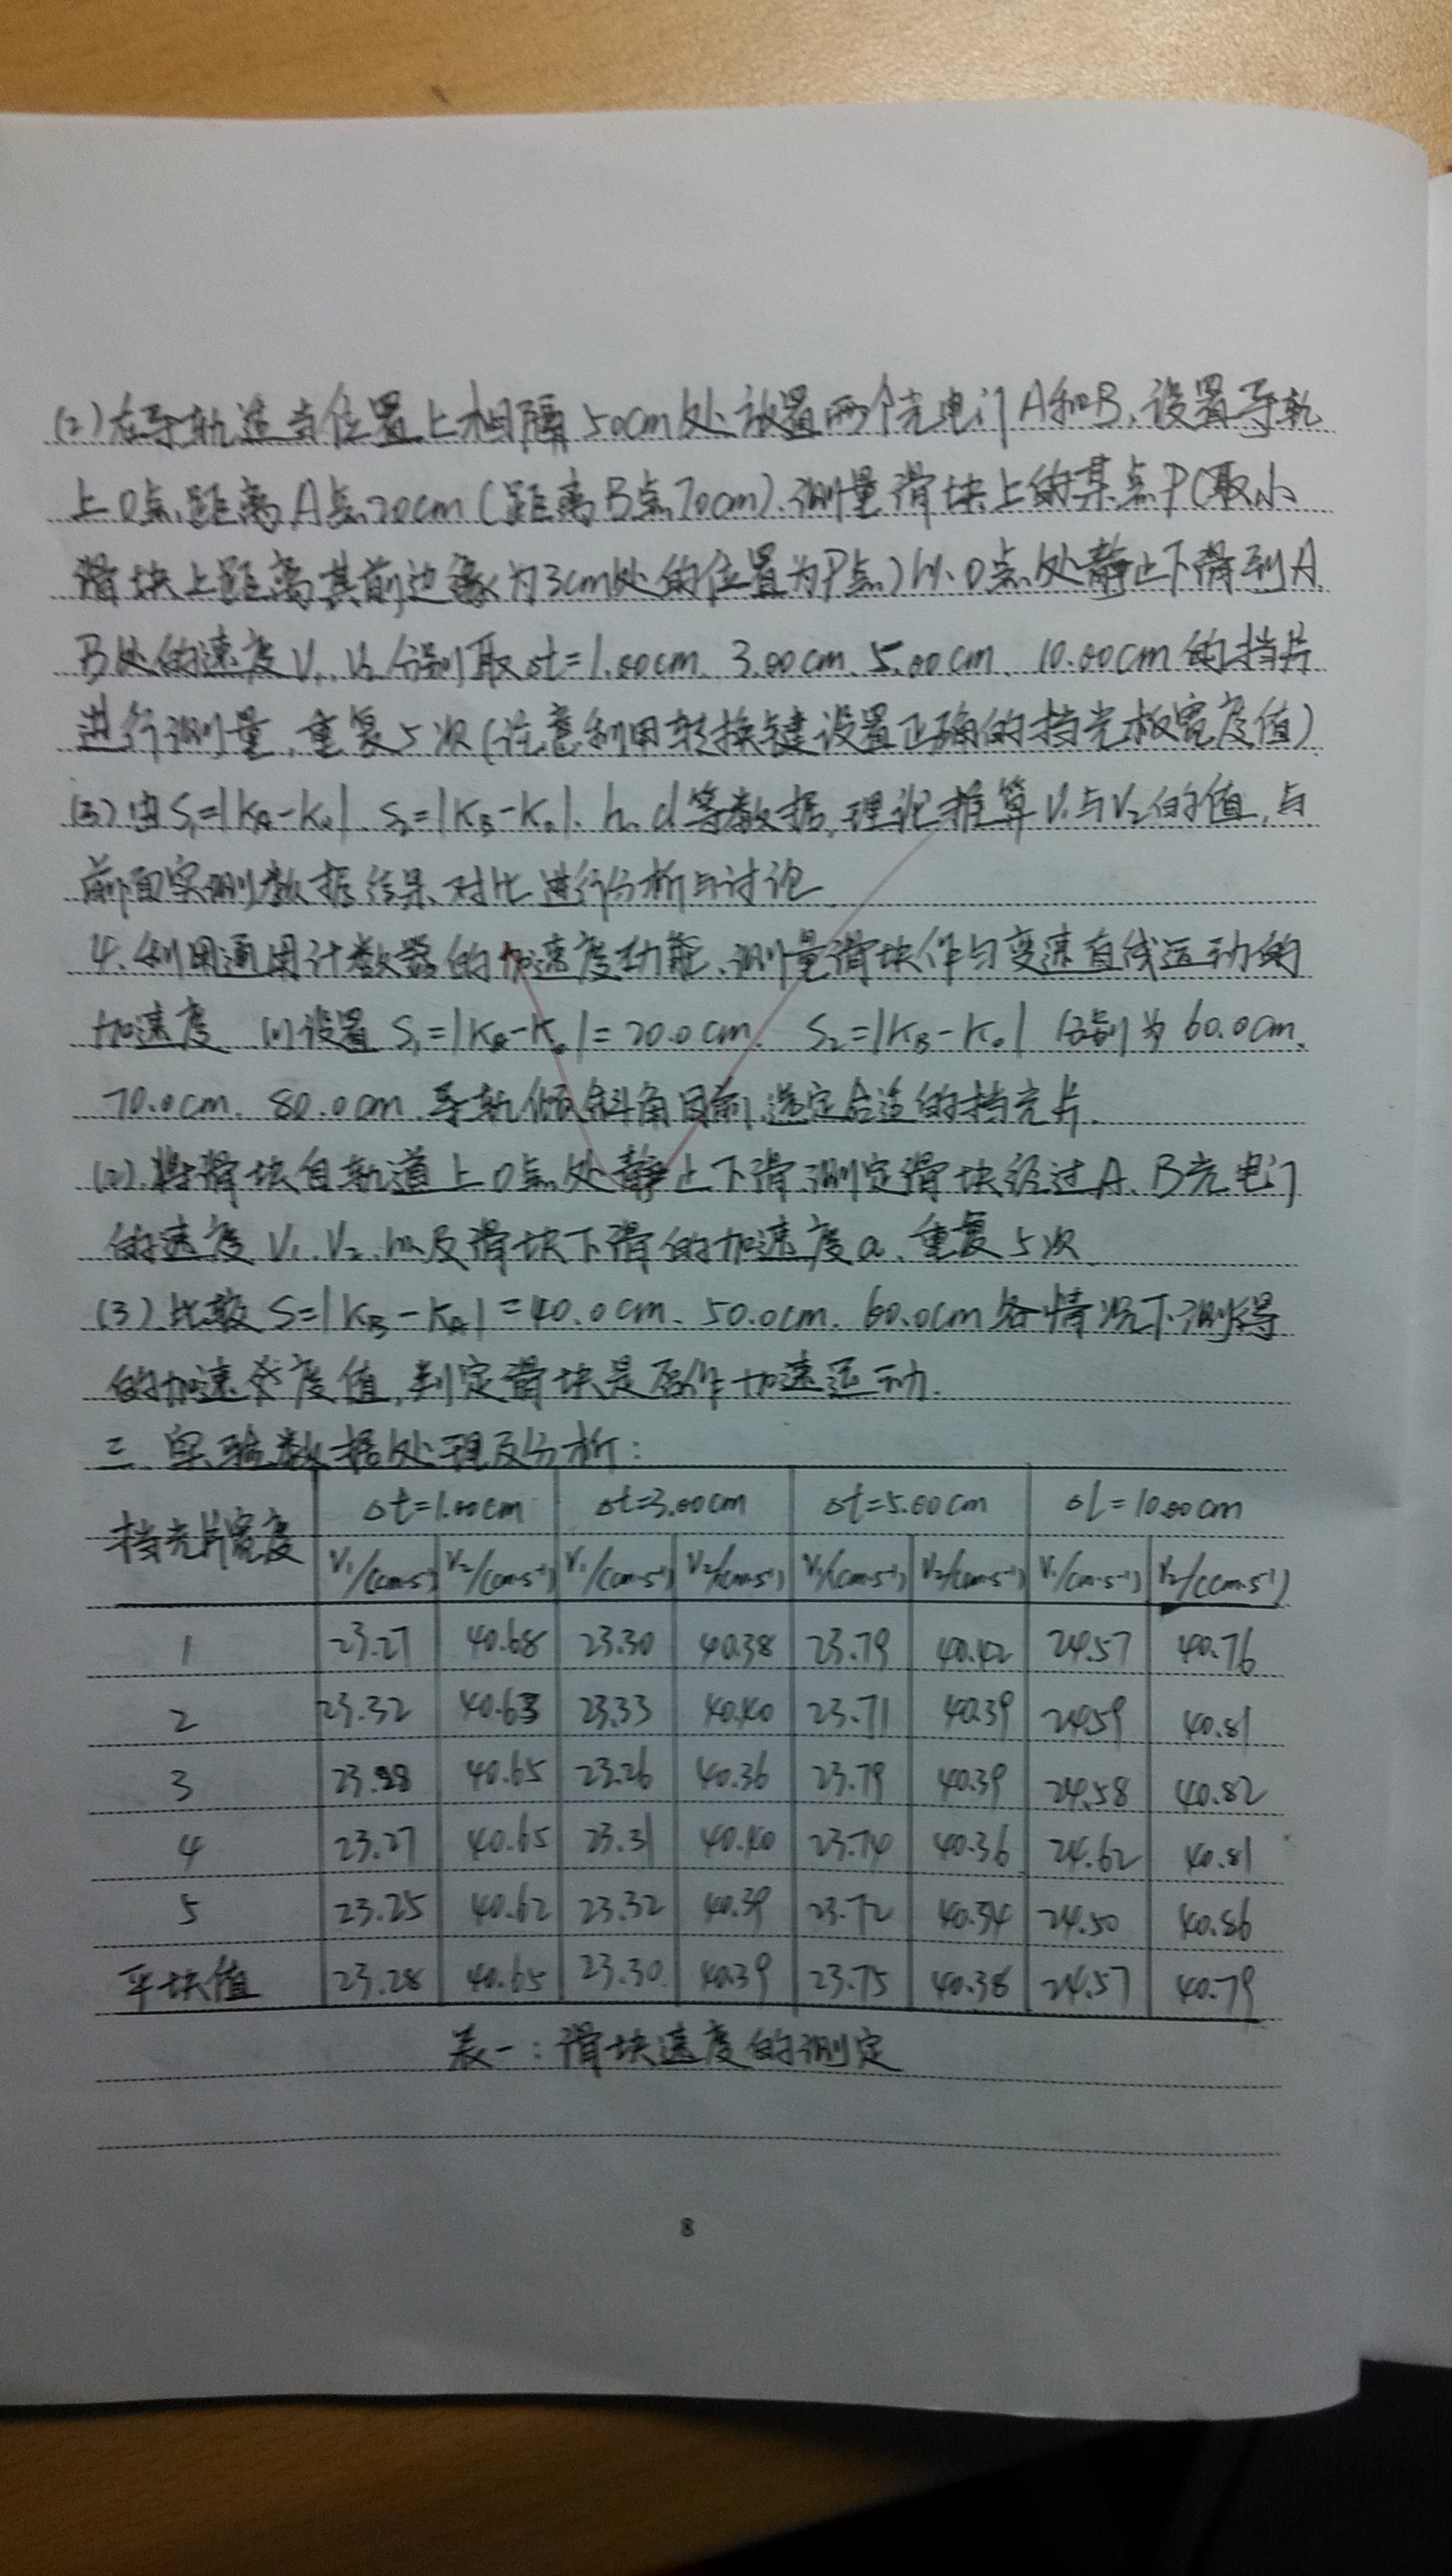 (2)在导轨适当位置上相隔50cm处放置两个光电门A和B,设置导轨
上O点距离A点20cm(距离B点70cm).测量滑块上的某点P(取小
滑块上距离其前边缘为3cm处的位置为P点)从O点处静止下滑到A、
B处的速度V₁、V₂分别取δt=1.00cm、3.00cm、5.00cm、10.00cm的挡片
进行测量,重复5次(注意利用转换键设置正确的挡光板宽度值)
(3)由S₁=|KA-K₀|、S₂=|KB-K₀|、h、d等数据,理论推算V₁与V₂的值,与
前面实测数据结果、对比进行分析与讨论
4、利用通用计数器的加速度功能、测量滑块作匀变速直线运动的
加速度 (1)设置S₁=|KA-K₀|=20.0cm、S₂=|KB-K₀|分别为60.0cm、
70.0cm、80.0cm、导轨倾斜角同前,选定合适的挡光片.
(2).将滑块自轨道上O点处静止下滑,测定滑块经过A、B光电门
的速度V₁、V₂、以及滑块下滑的加速度a、重复5次
(3).比较S=|KB-KA|=40.0cm、50.0cm、60.0cm各情况下测得
的加速度值,判定滑块是否作加速运动.
三、实验数据处理及分析:
挡光片宽度 δt=1.00cm δt=3.00cm δt=5.00cm δl=10.00cm
V₁/(cm·s⁻¹) V₂/(cm·s⁻¹) V₁/(cm·s⁻¹) V₂/(cm·s⁻¹) V₁/(cm·s⁻¹) V₂/(cm·s⁻¹) V₁/(cm·s⁻¹) V₂/(cm·s⁻¹)
1 23.27 40.68 23.30 40.38 23.79 40.42 24.57 40.76
2 23.32 40.63 23.33 40.40 23.71 40.39 24.59 40.81
3 23.28 40.65 23.26 40.36 23.79 40.39 24.58 40.82
4 23.27 40.65 23.31 40.40 23.74 40.36 24.62 40.81
5 23.25 40.62 23.32 40.39 23.72 40.34 24.50 40.86
平块值 23.28 40.65 23.30 40.39 23.75 40.38 24.57 40.79
表一:滑块速度的测定
8